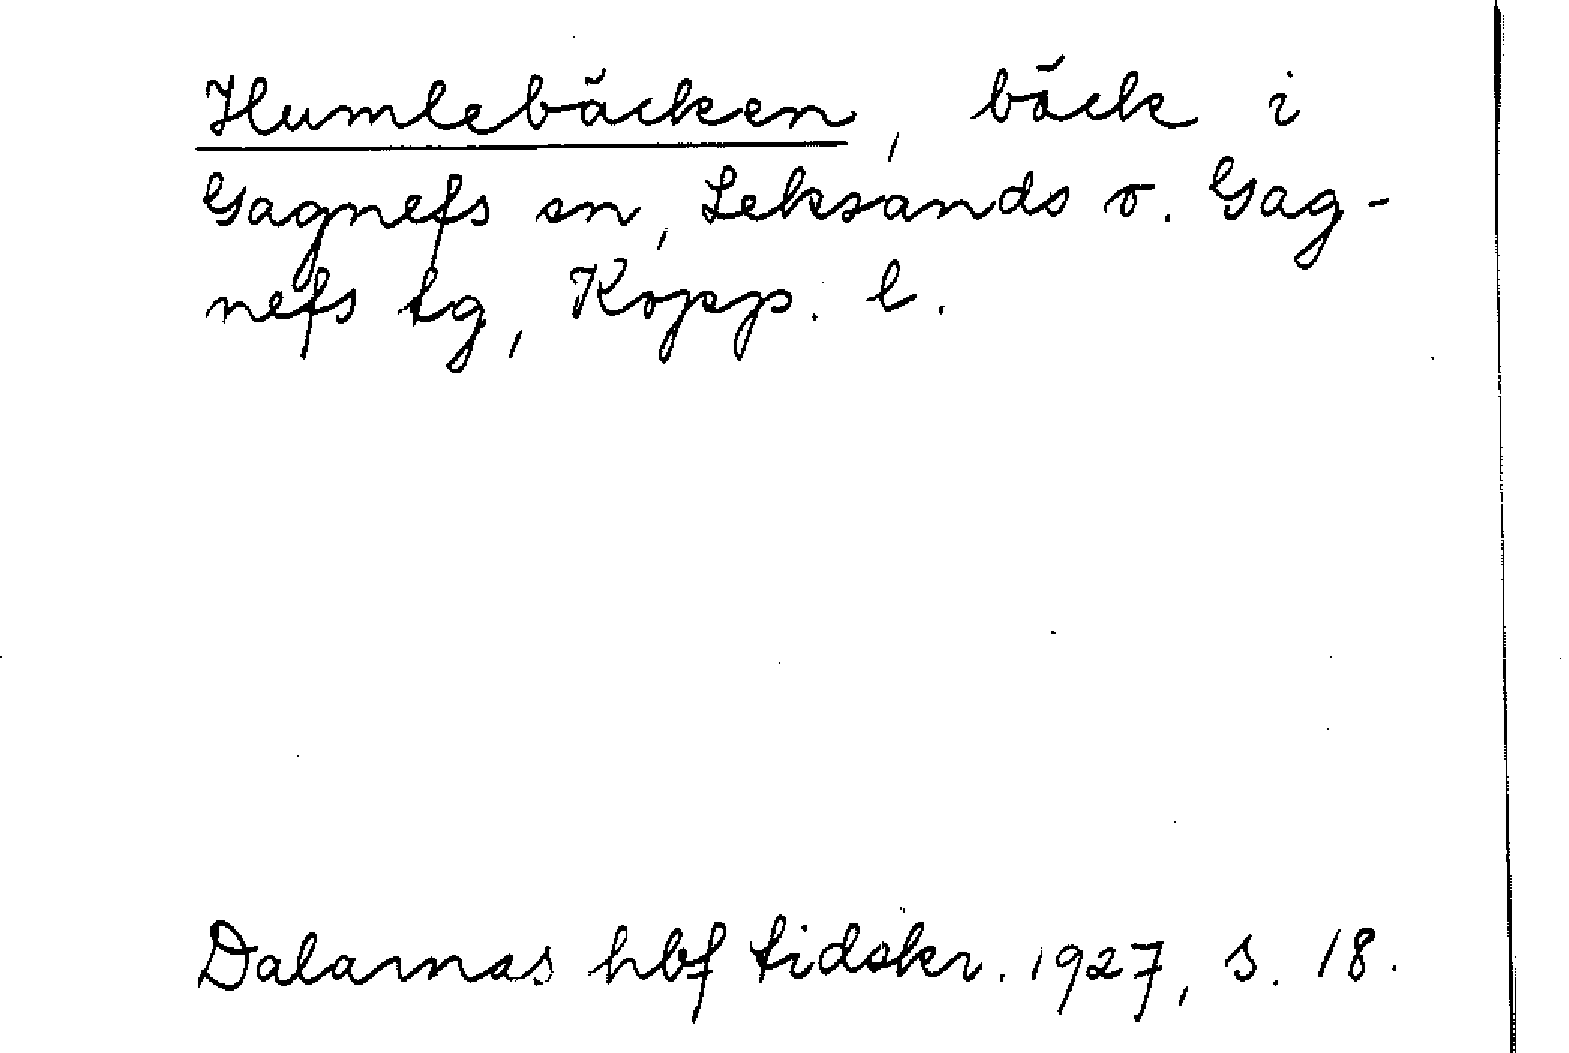 Humlebäcken, bäck i
Gagnefs sn, Leksands o. Gag-
nefs tg, Kopp. l.
Dalarnas hbf tidskr. 1927, s. 18.